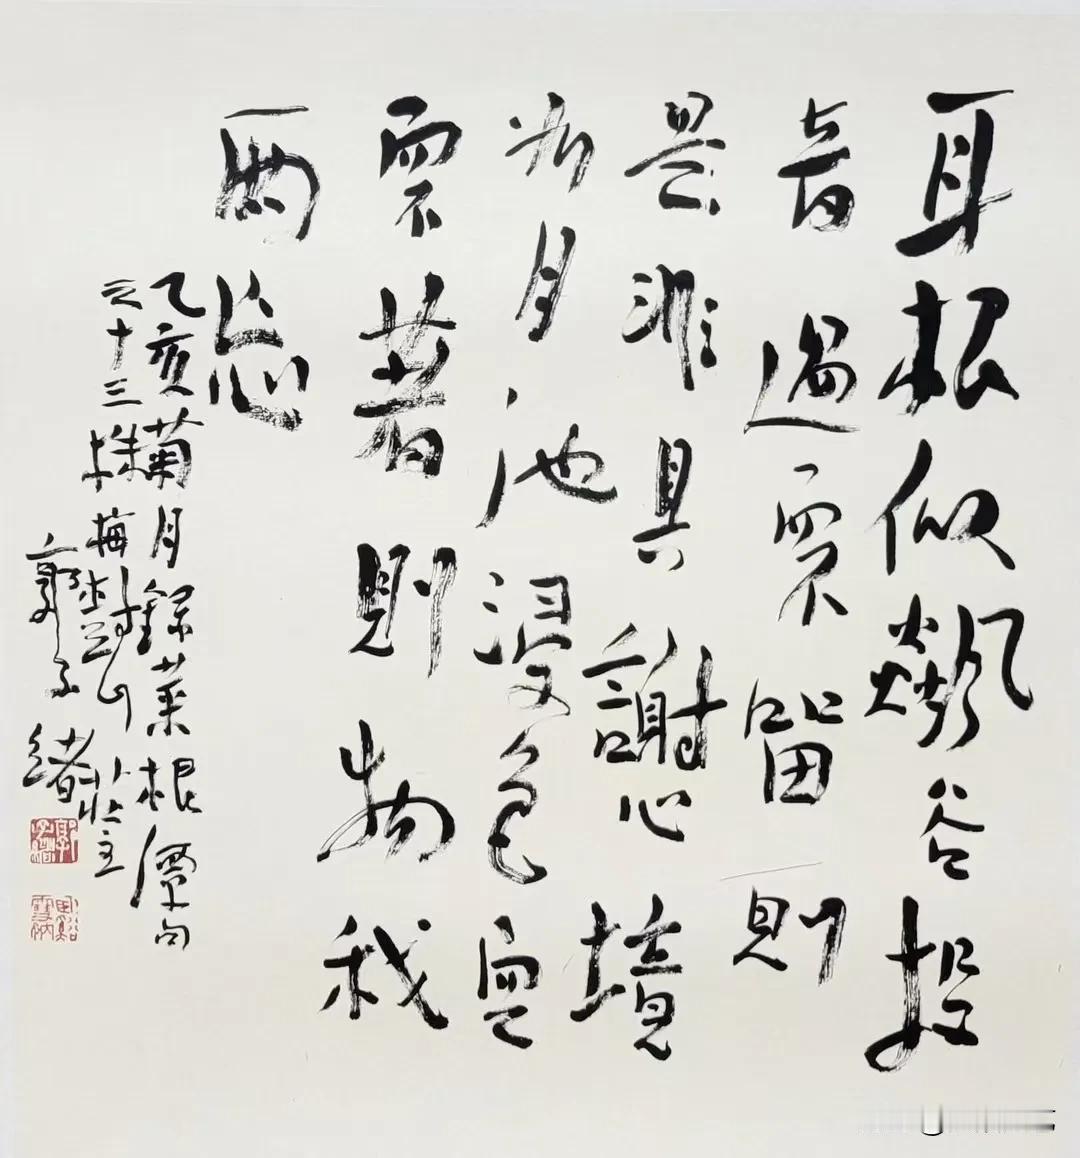 耳根似飇谷投
音過而不留則
是非具謝心境
如月池浸色空
而不著則物我
兩忘
乙亥菊月錄菜根譚句
十三株梅
郭子緒